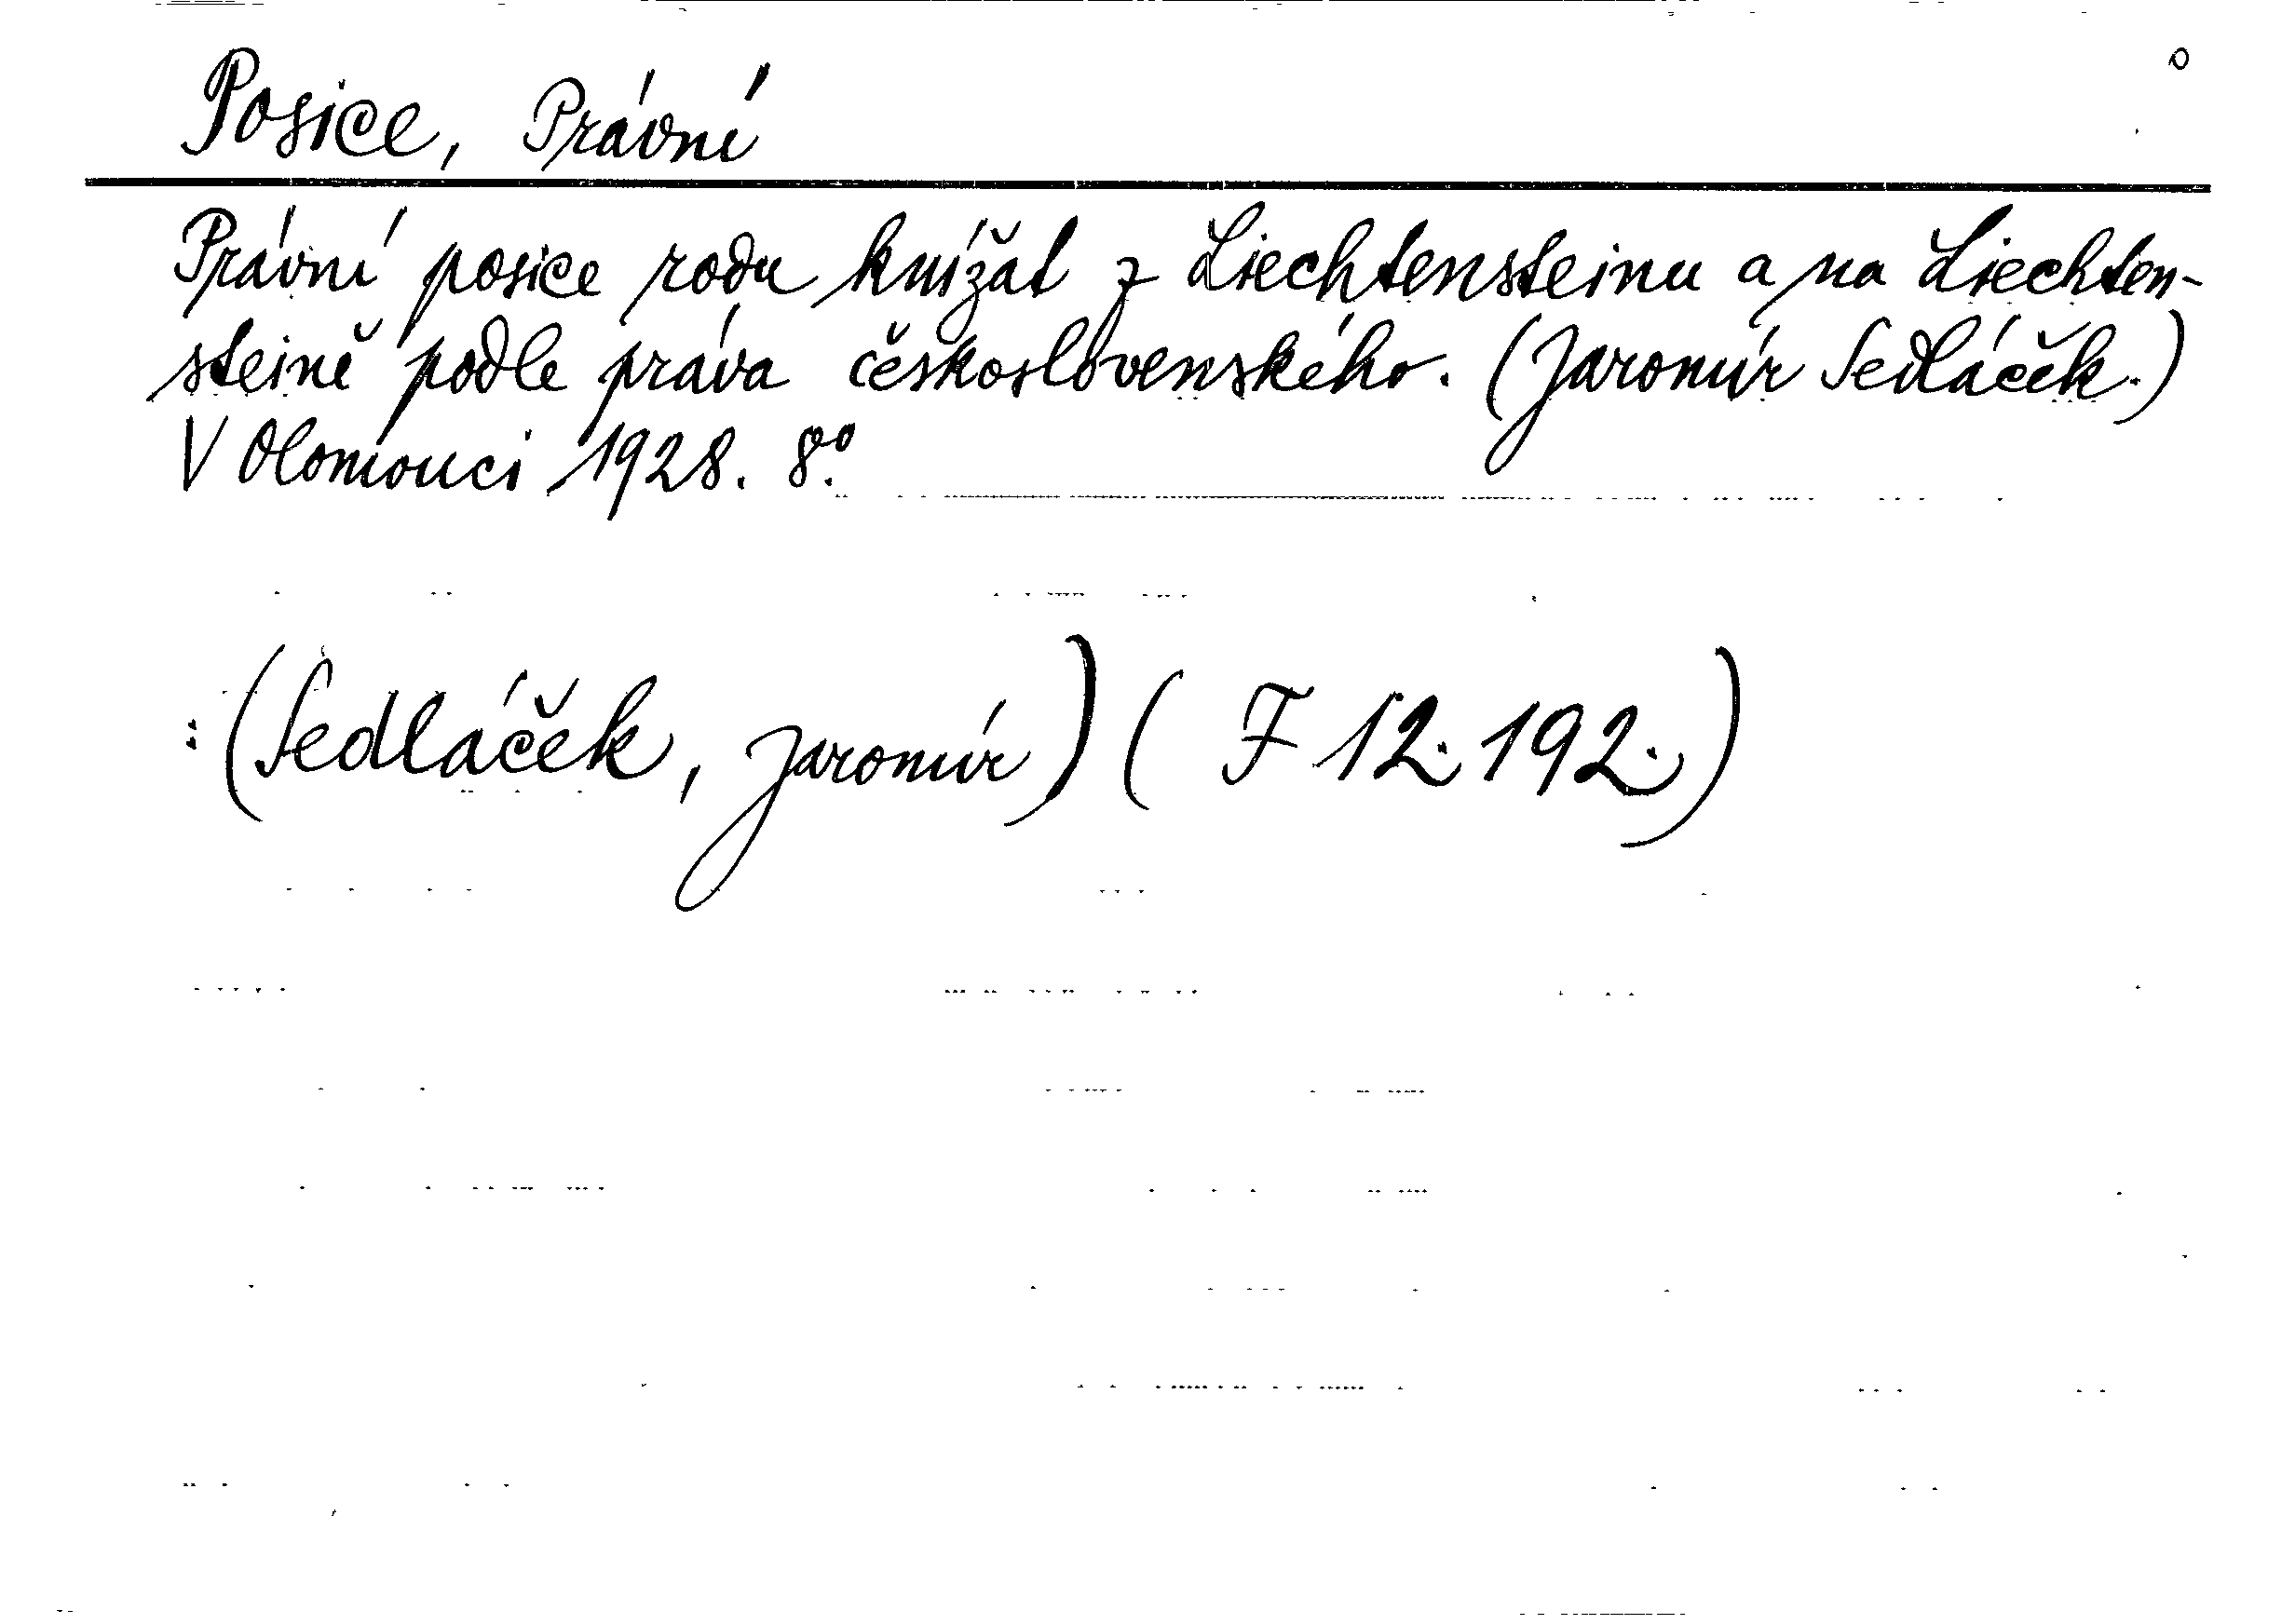 o
Posice, Právní
Právní posice rodu knížat z Liechtensteinu a na Liechten-
steině podle práva československého. (Jaromír Sedláček.)
V Olomouci 1928. 8°.
: (Sedláček, Jaromír) ( F 12.192.)